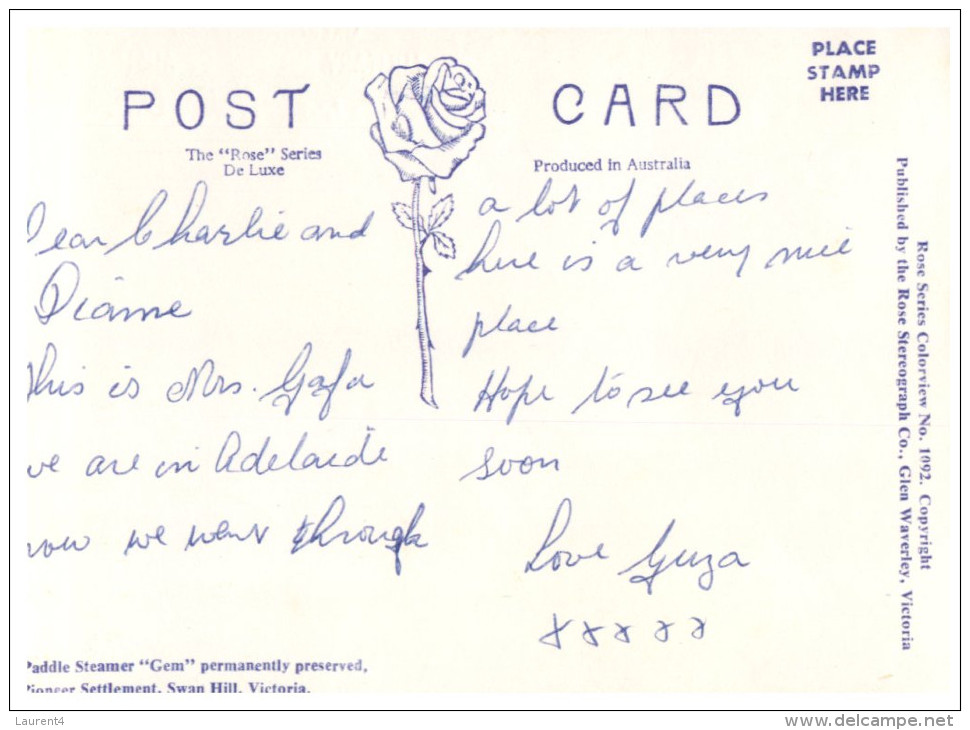 POST CARD
PLACE
STAMP
HERE
The "Rose" Series
De Luxe
Produced in Australia
Dear Charlie and
Dianne
This is Mrs. Gafa
we are in Adelaide
now we went through
a lot of places
here is a very nice
place
Hope to see you
soon
Love Guza
xxxxx
Paddle Steamer "Gem" permanently preserved,
Pioneer Settlement, Swan Hill, Victoria.
Rose Series Colorview No. 1092. Copyright
Published by the Rose Stereograph Co., Glen Waverley, Victoria
Laurent4
www.delcampe.net